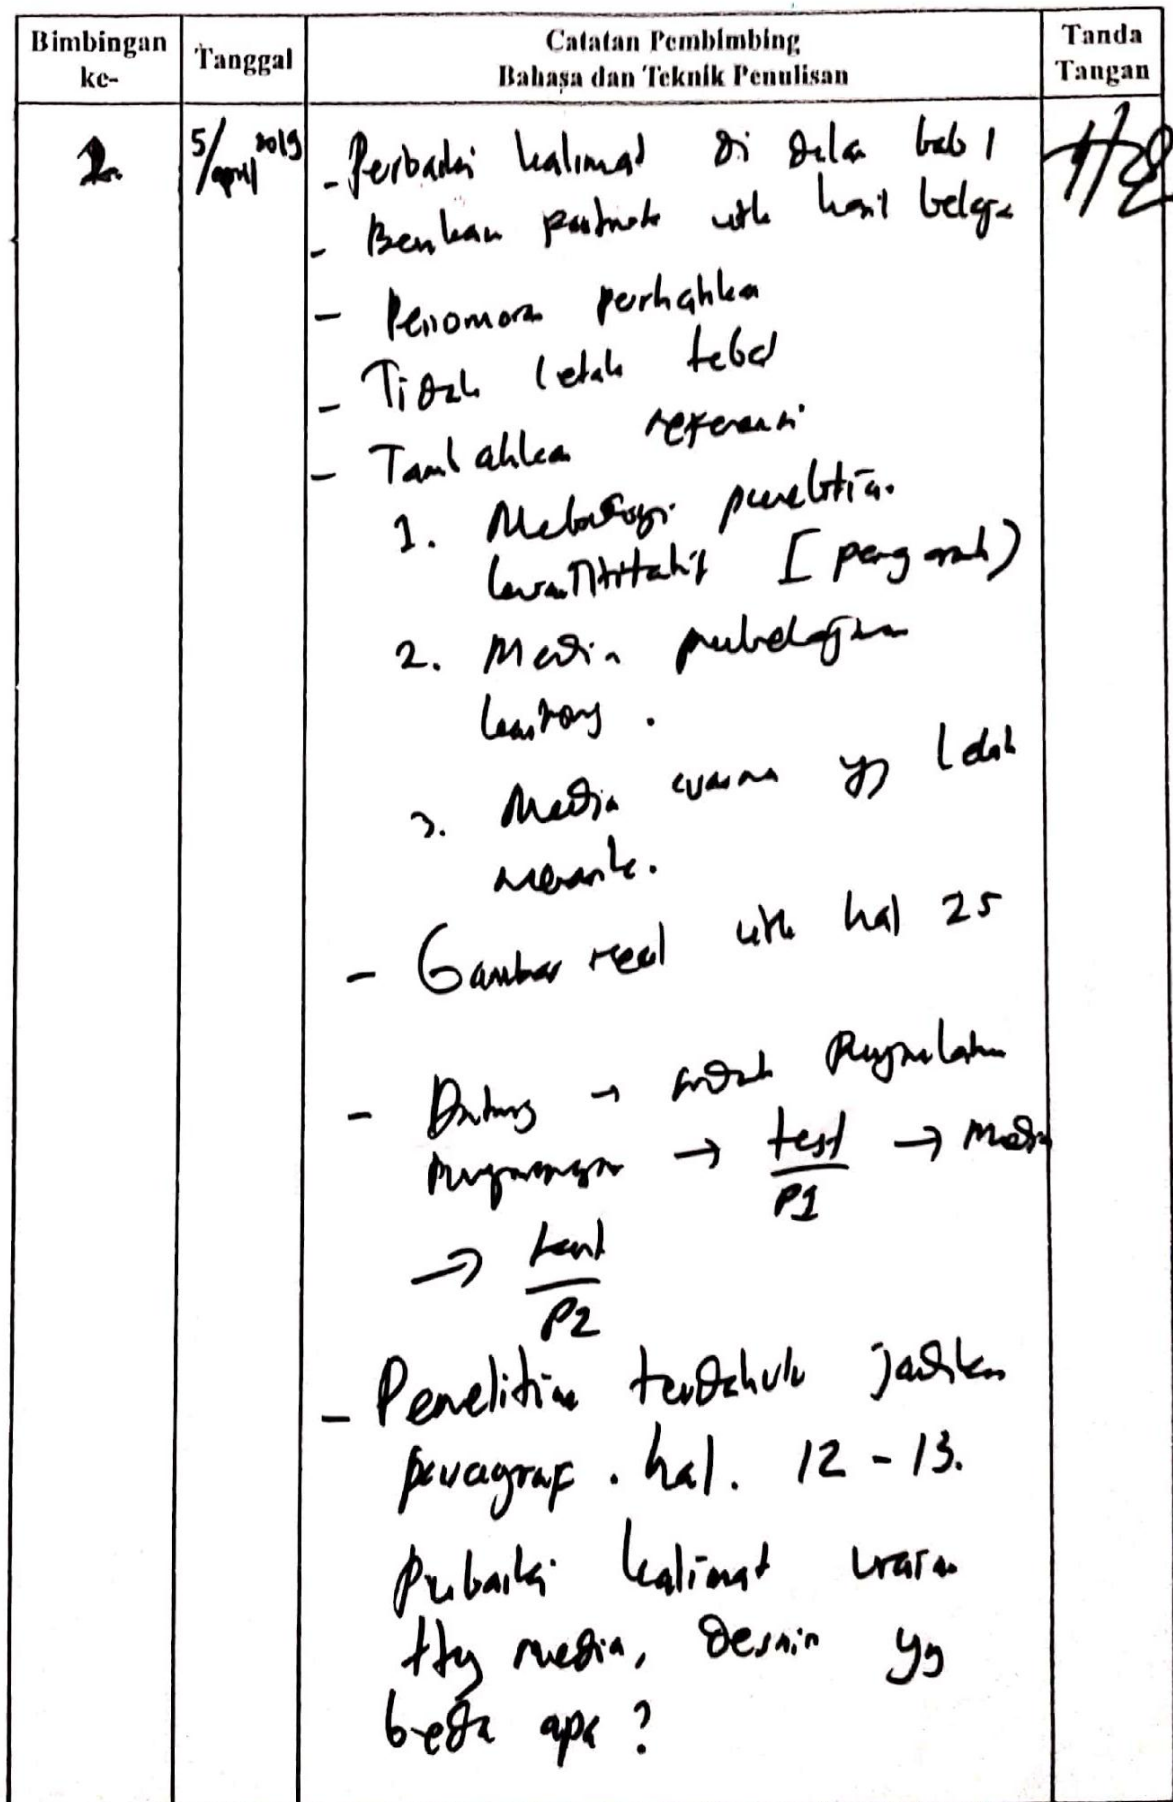 Bimbingan ke-
Tanggal
Catatan Pembimbing
Bahasa dan Teknik Penulisan
Tanda Tangan
2.
5/april 2019
- Perbaiki kalimat di dalam bab 1
- Berikan footnote utk hasil belajar
- Penomoran perhatikan
- Tidak cetak tebal
- Tambahkan referensi
1. Metodologi penelitian
kuantitatif [pengaruh)
2. Media pembelajaran
kantong.
3. Media warna yg lebih
menarik.
- Gambar real utk hal 25
- 
→ test → Media
P1
→ test
P2
- Penelitian terdahulu jadikan
paragraf. hal. 12 - 13.
Perbaiki kalimat uraian
ttg media, desain yg
beda apa?